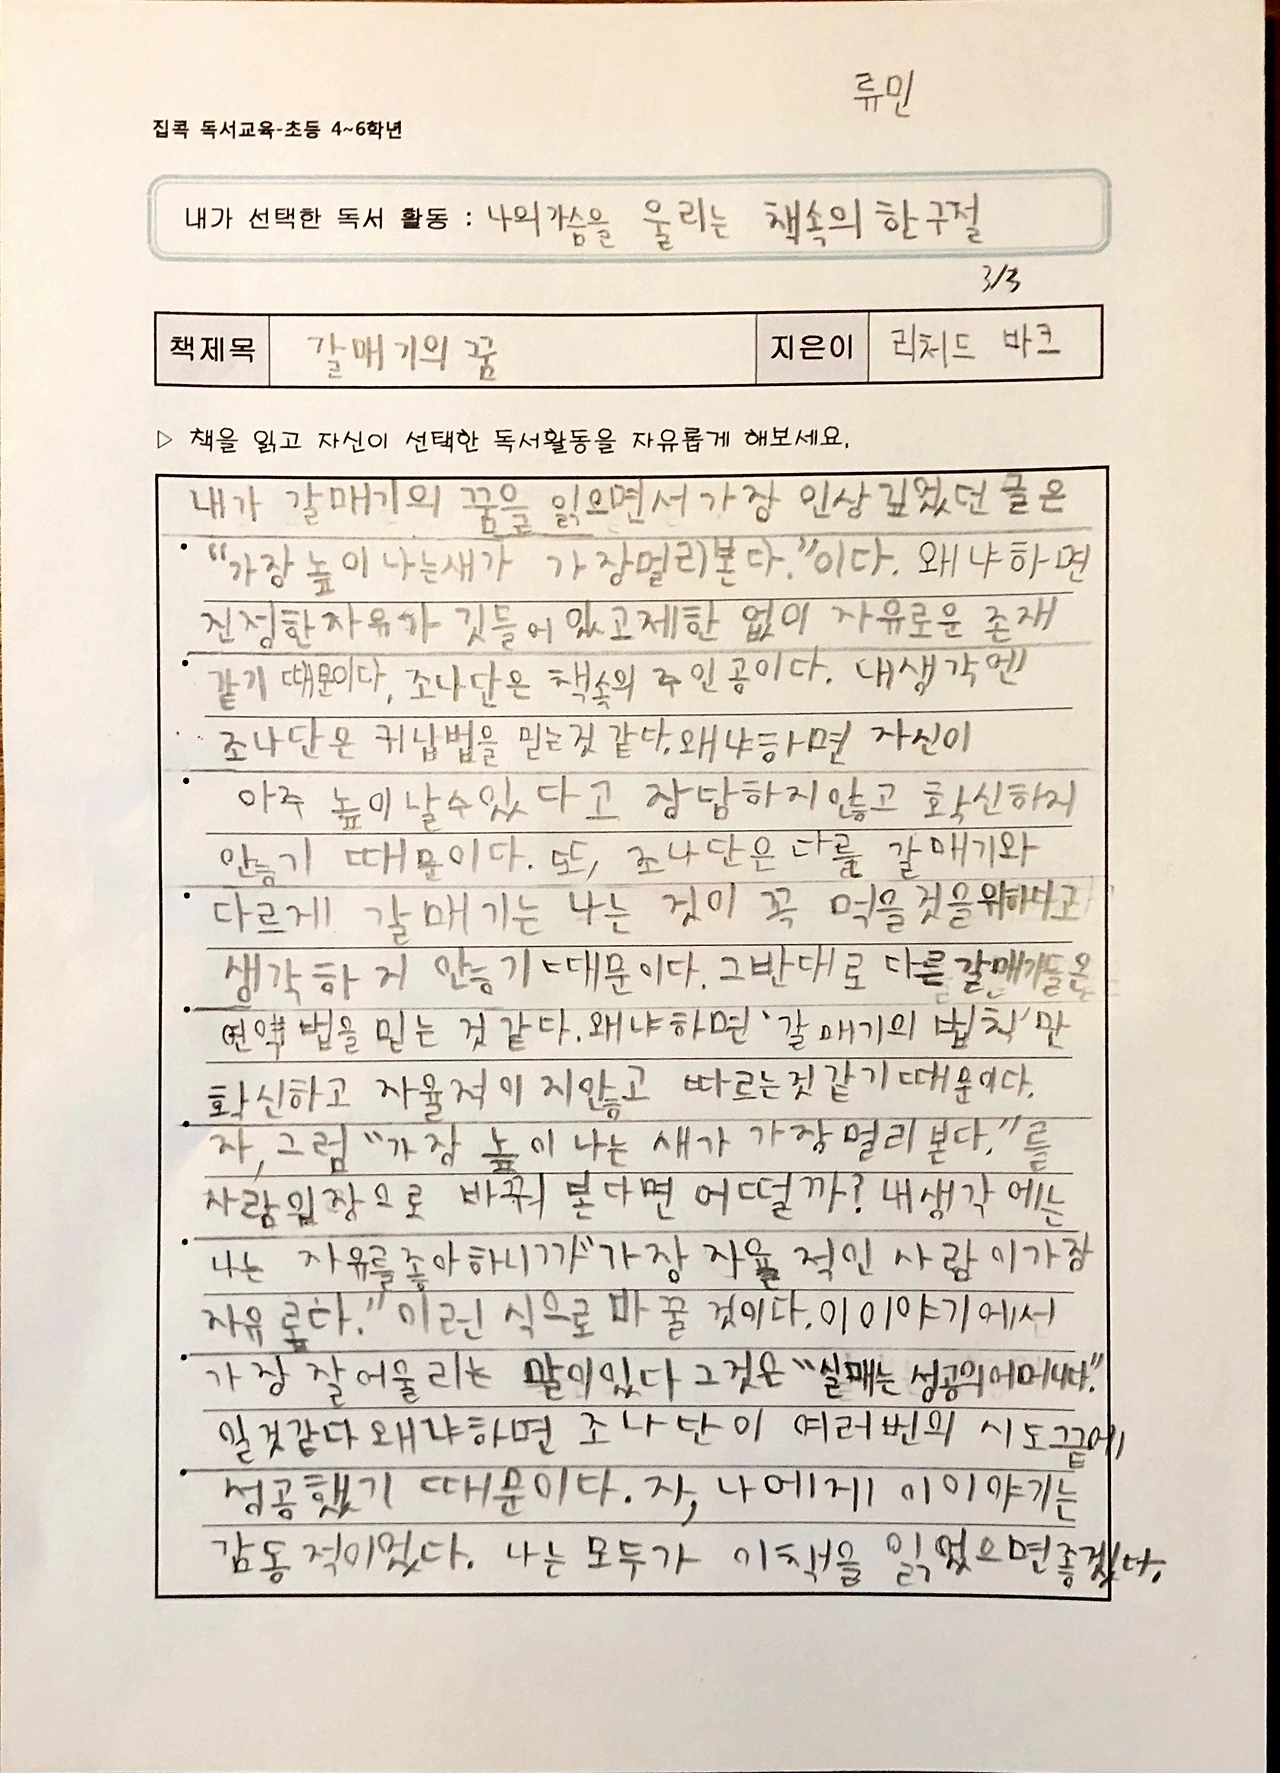 류민
집콕 독서교육-초등 4~6학년
내가 선택한 독서 활동 : 나의가슴을 울리는 책속의 한구절
3/3
책제목 갈매기의 꿈 지은이 리처드 바크
▷ 책을 읽고 자신이 선택한 독서활동을 자유롭게 해보세요.
내가 갈매기의 꿈을 읽으면서 가장 인상 깊었던 글은
"가장 높이 나는새가 가장멀리본다."이다. 왜냐하면
진정한자유가 깃들어 있고제한 없이 자유로운 존재
같기 때문이다. 조나단은 책속의 주인공이다. 내생각엔
조나단은 귀납법을 믿는것 같다.왜냐하면 자신이
아주 높이날수있다고 장담하지않고 확신하지
안능기 때문이다. 또, 조나단은 다를 갈매기와
다르게 갈매기는 나는 것이 꼭 먹을것을위하다고
생각하지 안능기때문이다. 그반대로 다른갈매기들은
연약법을 믿는 것 같다.왜냐하면 '갈매기의 법칙'만
확신하고 자율적이지않고 따르는것같기때문이다.
자, 그럼 "가장 높이 나는 새가 가장멀리 본다."를
사람입장으로 바꿔 본다면 어떨까? 내생각에는
나는 자유를좋아하니까"가장 자율적인 사람이가장
자유롭다." 이런 식으로 바꿀 것이다.이이야기에서
가장 잘어울리는 말이있다 그것은 "실패는 성공의어머니다."
일것같다 왜냐하면 조나단이 여러번의 시도끝에
성공했기 때문이다. 자, 나에게 이이야기는
감동적이었다. 나는 모두가 이책을 읽었으면좋겠다.